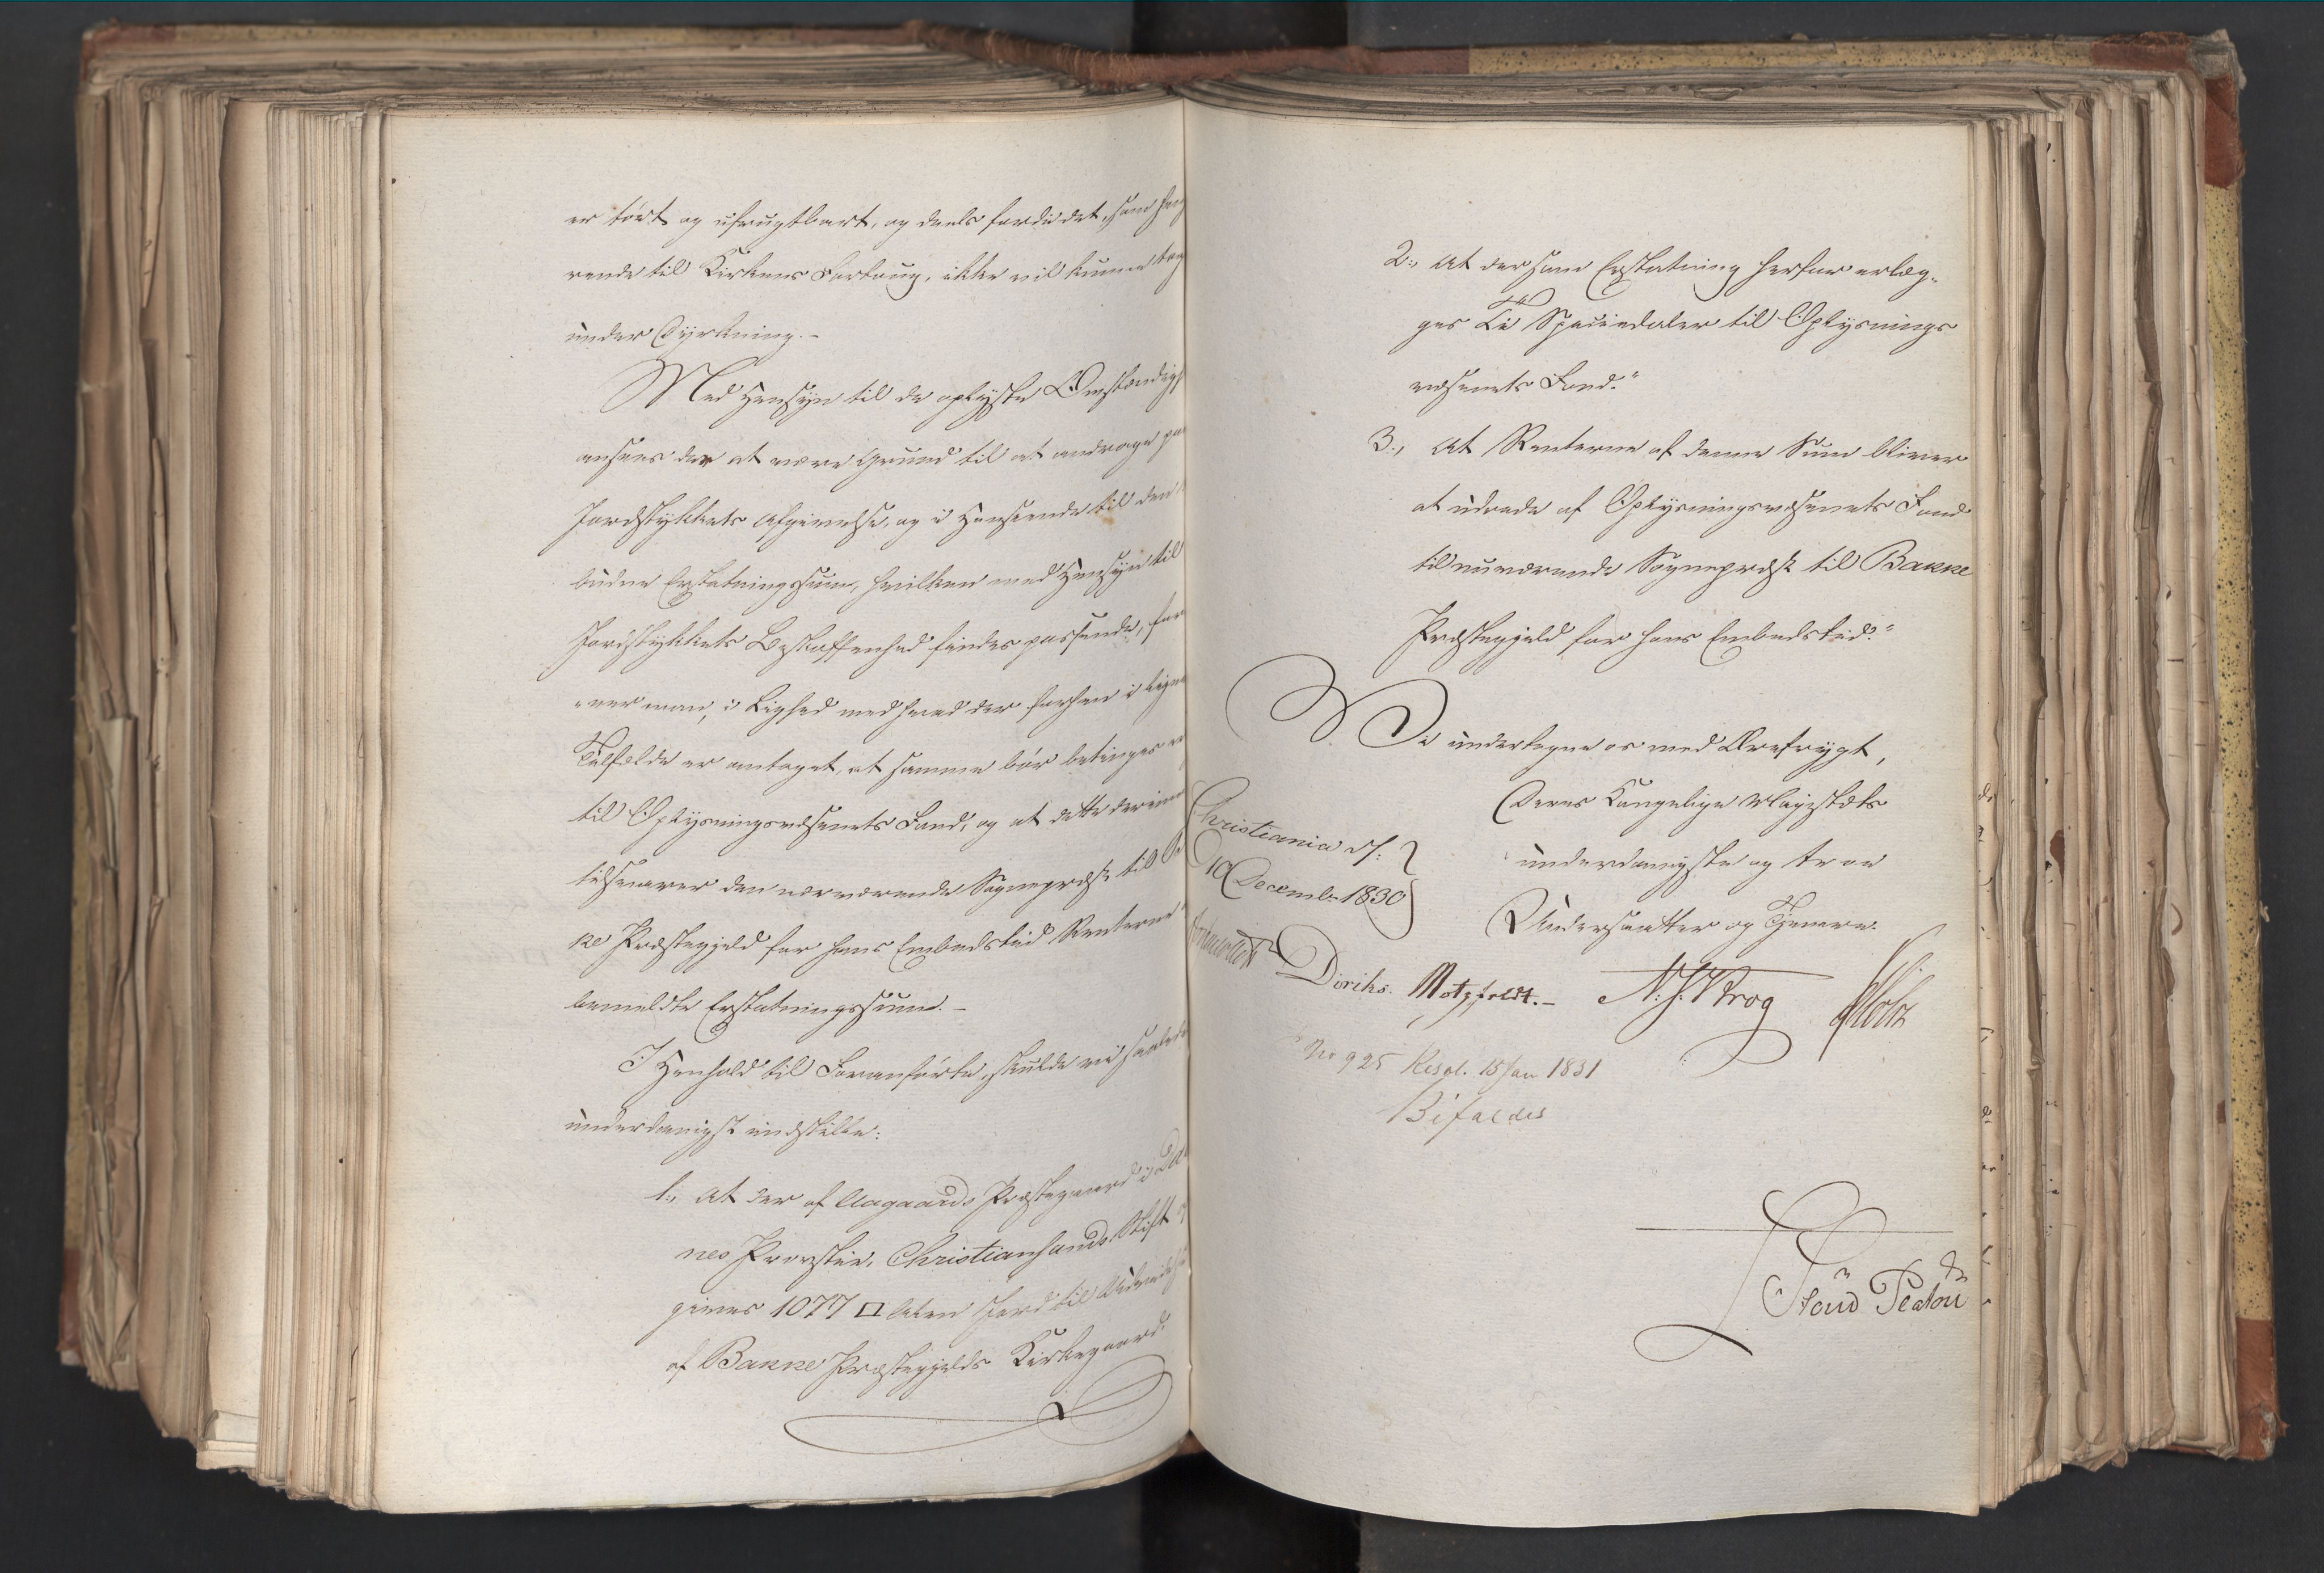 er tört og ufrugtbart, og deels fordi det, som hen
rende til Kirkens Fortoug, ikke vil kunne tag
under Dyrkning.-
Med Hensyn til de oplyste Omstændigh
ansees der at være Grund til at andrage paa
Jordstykkets Afgivelse, og i Henseende til den
budne Erstatningssum, hvilken med Hensyn til
Jordstykkets Beskaffenhed findes passende, for
-mer man, i Lighed med hvad der forhen i lign
Tilfælde er antaget, at samme bör betinges
til Oplysningsvæsenets Fond, og at dette derimo
tilsvarer den nærværende Sognepræst til Ba
ke Præstegjeld for hans Embedstid Renterne
bemeldte Erstatningssum.-
I Henhold til Foranförte, skulde vi saaled
underdanigst indstille:
1., At der af Aagaards Præstegaard i Da
nes Provstie, Christiansands Stift
gives 1077 □ Alen Jord til Udvidelse
af Bakke Præstegjelds Kirkegaard.
2., At der som Erstatning herfor erlæg-
ges Ti Speciedaler til Oplysnings
væsenets Fond."
3., At Renterne af denne Sum bliver
at udrede af Oplysningsvæsenets Fond
til nuværende Sognepræst til Bakke
Præstegjeld for hans Embedstid."
Vi undertegne os med Ærefrygt,
Deres Kongelige Majestæts
underdanigste og troe
Undersaatter og Tjenere.
Christiania d.
10 Decembr 1830
Diriks. Motzfeldt.- N. J. Krog Holst
No 925 Resol. 15 Jan 1831
Bifaldes
Stoud Platou